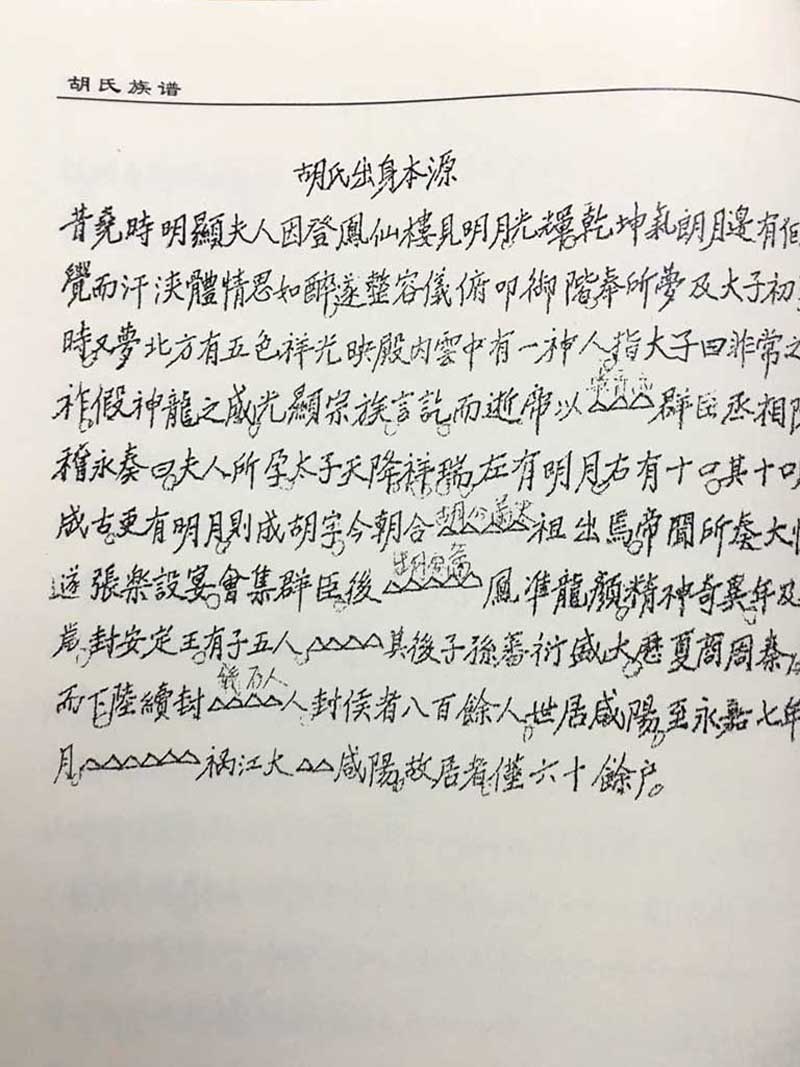 胡氏族谱
胡氏出身本源
昔堯時明顯夫人因登鳳仙樓見明月光輝乾坤氣朗月邊有
覺而汗浹體情思如醉遂整容儀俯叩御階奉所夢及太子初
時又夢北方有五色祥光映殿内雲中有一神人指太子曰非常之
祚假神龍之感光顯宗族言訖而逝帝以△△△群臣丞相
稽永奏曰夫人所孕太子天降祥瑞左有明月右有十口其十口
成古更有明月則成胡字今朝合△△△△△祖出焉帝聞所奏大
遂張樂設宴會集群臣後△△△△△鳳准龍顏精神奇異年及
歲封安定王有子五人△△△△其後子孫蕃衍盛大歷夏商周秦
而下陸續封△△△△人封侯者八百餘人世居咸陽至永嘉七年
月△△△△△△祸江大△△咸陽故居者僅六十餘户